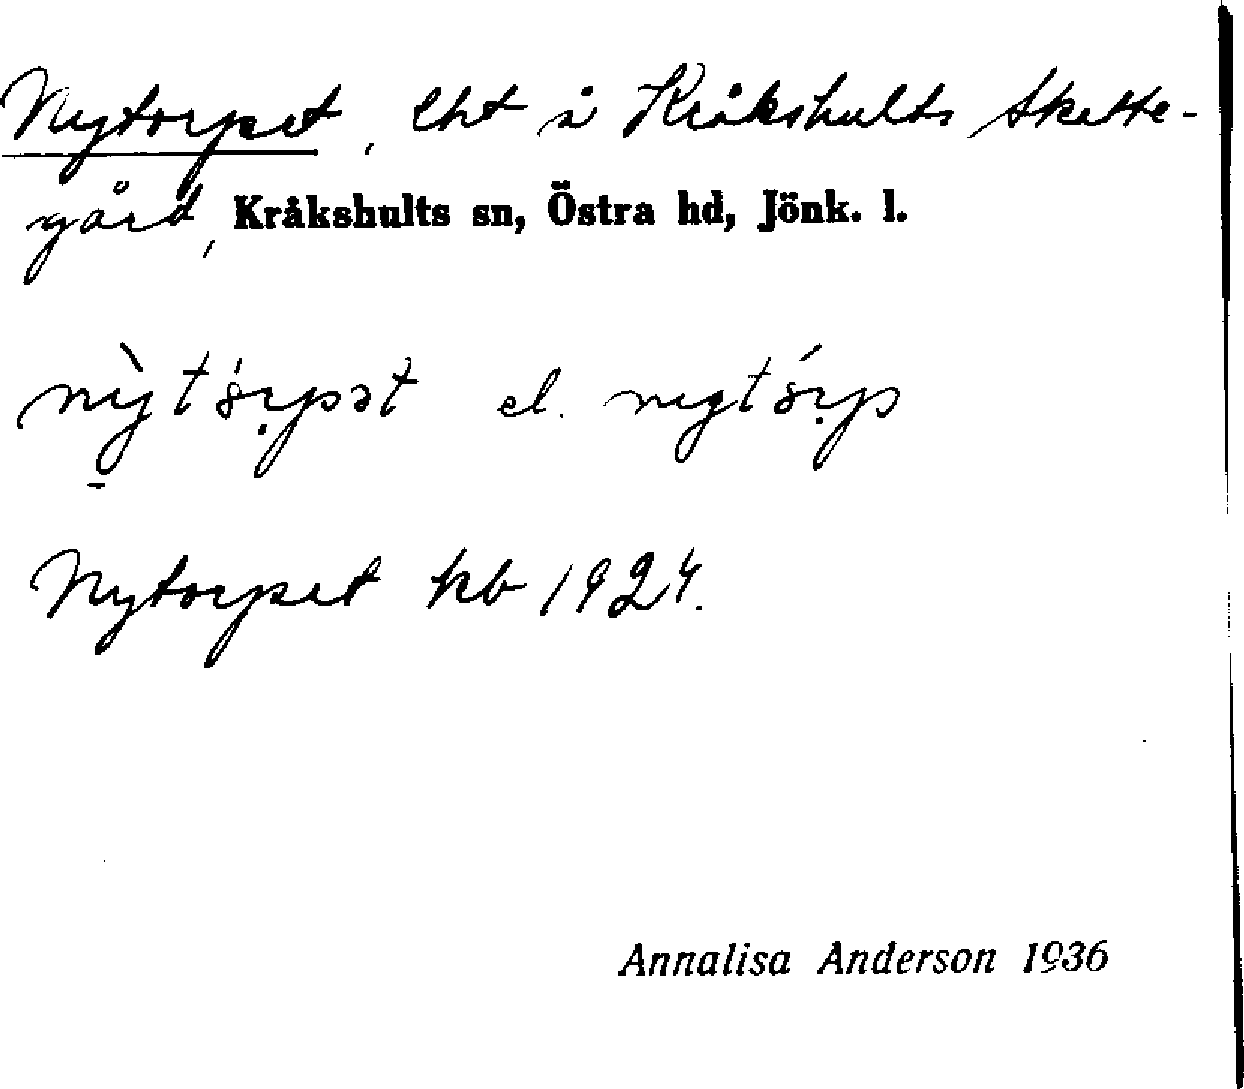 Nytorpet, lht å Kråkshults Skatte-
gård, Kråkshults sn, Östra hd, Jönk. l.
el.
Nytorpet kb 1924.
Annalisa Anderson 1936